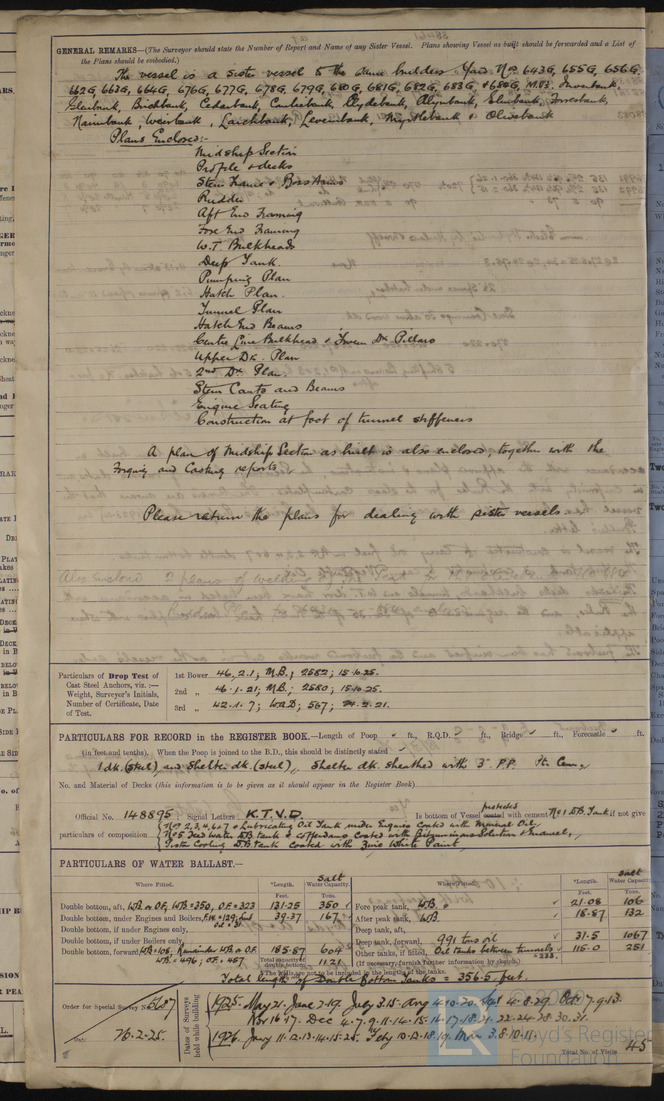 GENERAL REMARKS—(The Surveyor should state the Number of Report and Name of any Sister Vessel. Plans showing Vessel as built should be forwarded and a List of
the Plans should be embodied.)
The vessel is a sister vessel to the same builders Yard Nos 643G, 655G, 656G,
662G, 663G, 664G, 676G, 677G, 678G, 679G, 680G, 681G, 682G, 683G, & 685G, M.V's. Inverbank,
Glenbank, Birchbank, Cedarbank, Comliebank, Clydebank, Alynbank, Elmbank, Forresbank,
Nairnbank, Weirbank, Larchbank, Levernbank, Myrtlebank & Olivebank
Plans Enclosed:-
Midship Section
Profile & decks
Stern Frame & Boss Arms
Rudder
Aft End Framing
Fore End Framing
W.T. Bulkheads
Deep Tank.
Pumping Plan
Hatch Plan.
Tunnel Plan
Hatch End Beams
Centre Line Bulkhead & Tween Dk Pillars
Upper Dk. Plan
2nd Dk Plan.
Stem Cants and Beams
Engine Seating
Construction at foot of tunnel stiffeners
A plan of Midship Section as built is also enclosed, together with the
Forging and Casting reports.
Please return the plans for dealing with sister vessels.
Also enclosed 2 plans of
Particulars of Drop Test of
Cast Steel Anchors, viz. :—
Weight, Surveyor's Initials,
Number of Certificate, Date
of Test.
1st Bower 46.2.1; M.B.; 2582; 15.10.25.
2nd „ 46.1.21; M.B.; 2580; 15.10.25.
3rd „ 42.1.7; W.D; 567; 24.2.21.
PARTICULARS FOR RECORD in the REGISTER BOOK.—Length of Poop ft., R.Q.D. ft., Bridge ft., Forecastle ft.
(in feet and tenths). When the Poop is joined to the B.D., this should be distinctly stated
1 dk. (steel) and Shelter dk. (steel), Shelter dk. sheathed with 3" P.P.
No. and Material of Decks (this information is to be given as it should appear in the Register Book)
Official No. 148895 Signal Letters K.T.V.D. Is bottom of Vessel protected coated with cement No 1 D.B. Tank if not give
particulars of composition Nos 2, 3, 4, 6 & 7 & Lubricating Oil Tank under Engines coated with Mineral Oil.
No 5 Feed water D.B. tank & cofferdams coated with Bituminous Solution & Enamel,
Piston cooling D.B. tank coated with Zinc White Paint
PARTICULARS OF WATER BALLAST.—
Where Fitted. *Length. Feet. Salt Water Capacity. Tons.
Double bottom, aft, W.B. or O.F. W.B = 350, O.F. = 323 131.25 350
Double bottom, under Engines and Boilers, F.W = 129, 39.37 167
Double bottom, if under Engines only,
Double bottom, if under Boilers only,
Double bottom, forward, W.B = 108, Remainder W.B or O.F. 185.87 604
W.B = 496; O.F. = 457 Total capacity of double bottom 1121
Where Fitted. *Length. Feet. Salt Water Capacity Tons.
Fore peak tank, W.B. 21.08 106
After peak tank, W.B. 18.87 132
Deep tank, aft,
Deep tank, forward, 991 tons oil 31.5 1067
Other tanks, if fitted, Oil tanks between tunnels = 233. 115.0 251
(If necessary, furnish further information by sketch).
*The wells are not to be included in the length of the tanks.
Total length of Double Bottom Tanks = 356.5 feet.
Order for Special Survey No. 5687
Date 26.2.25.
Dates of Surveys held while building
1925. May 21. June 2.19. July 3.15. Aug 4.10.20. Sept 4.8.29. Oct 7.9.13.
Nov 16.17. Dec 4.7.9.11.14.15.16.17.18.21.22.24.28.30.31.
1926. Jany 11.12.13.14.15.25. Feby 10.12.18.19. Mar 3.8.10.11.
Total No. of Visits 45
© 2020
Lloyd's Register
Foundation